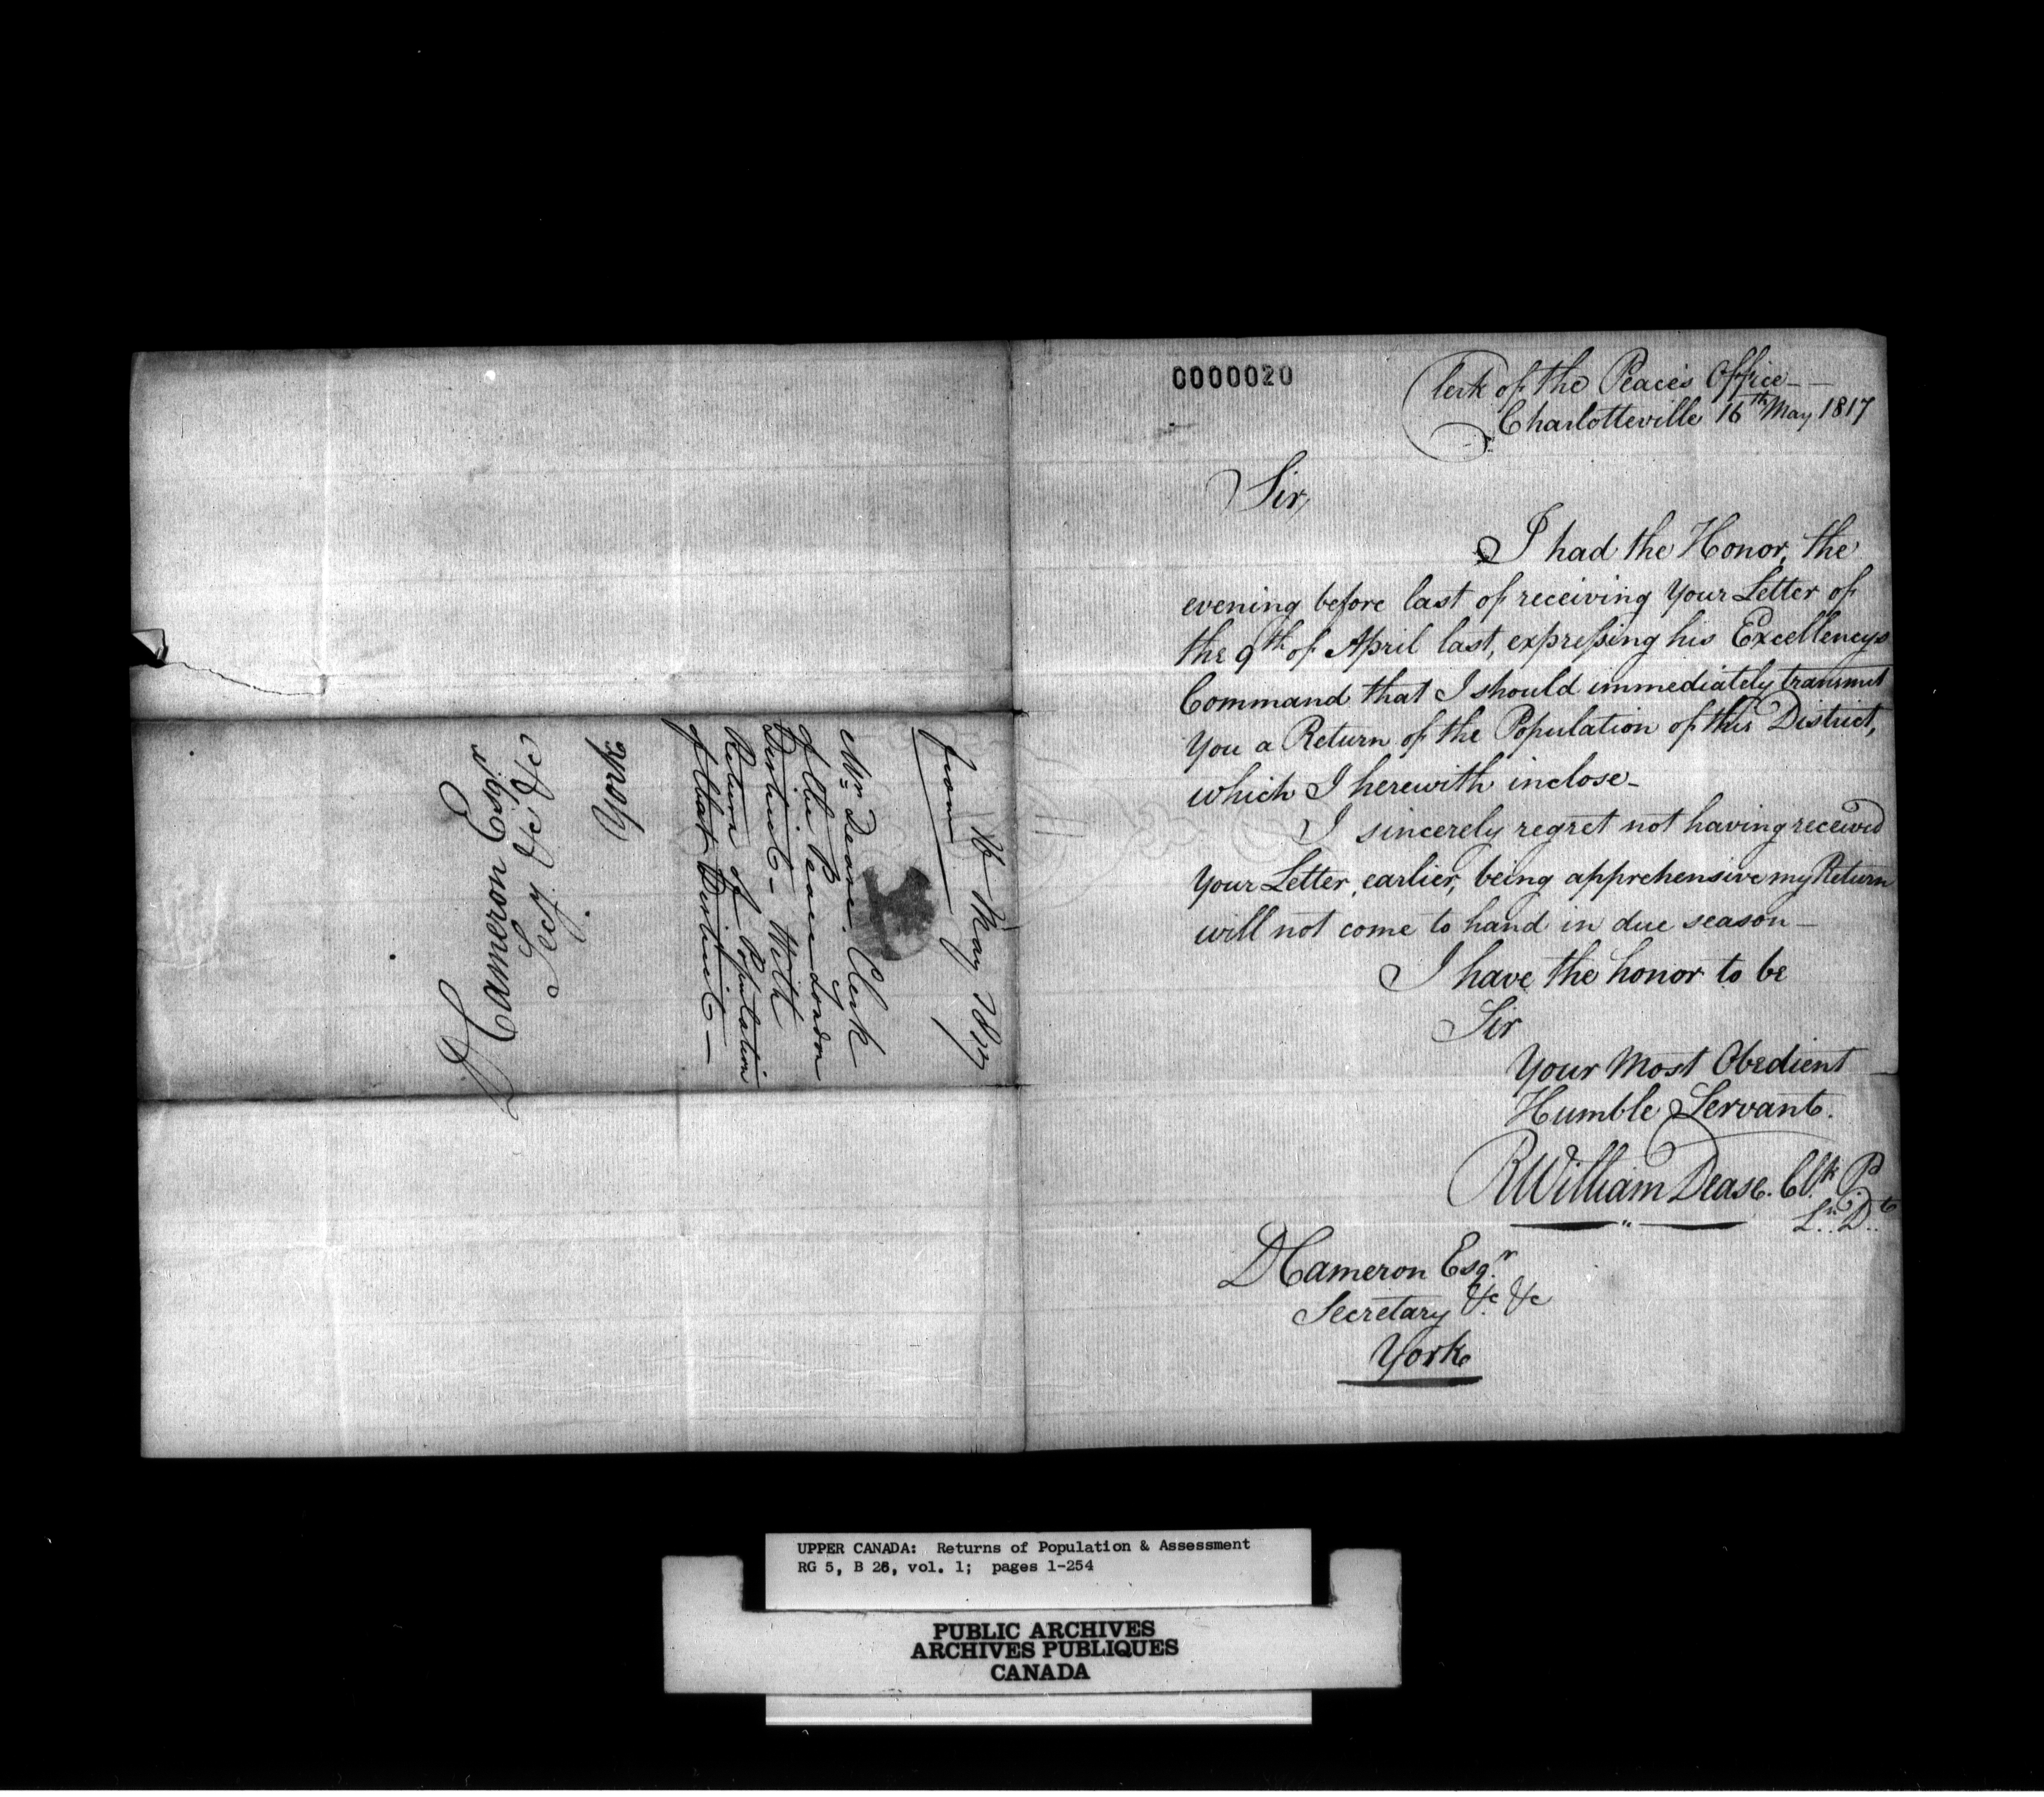 0000020
Clerk of the Peace's Office
Charlotteville 16th May 1817
Sir,
I had the Honor, the
evening before last of receiving your Letter of
the 9th of April last, expreſsing his Excellencys
Command that I should immediately transmit
You a Return of the Population of this District,
which I herewith inclose-
I sincerely regret not having received
your Letter, earlier, being apprehensive my Return
will not come to hand in due season-
I have the honor to be
Sir
Your Most Obedient
Humble Servant.
RWilliam Dease. Clk. P
Ln. Dt
DCameron Esqr
Secretary &c &c
York
DCameron Esqr
Secy &c &c
York
16 May 1817
from
Mr Dease. Clerk
of the Peace London
District - With
Return of Population
of that District -
UPPER CANADA: Returns of Population & Assessment
RG 5, B 26, vol. 1; pages 1-254
PUBLIC ARCHIVES
ARCHIVES PUBLIQUES
CANADA